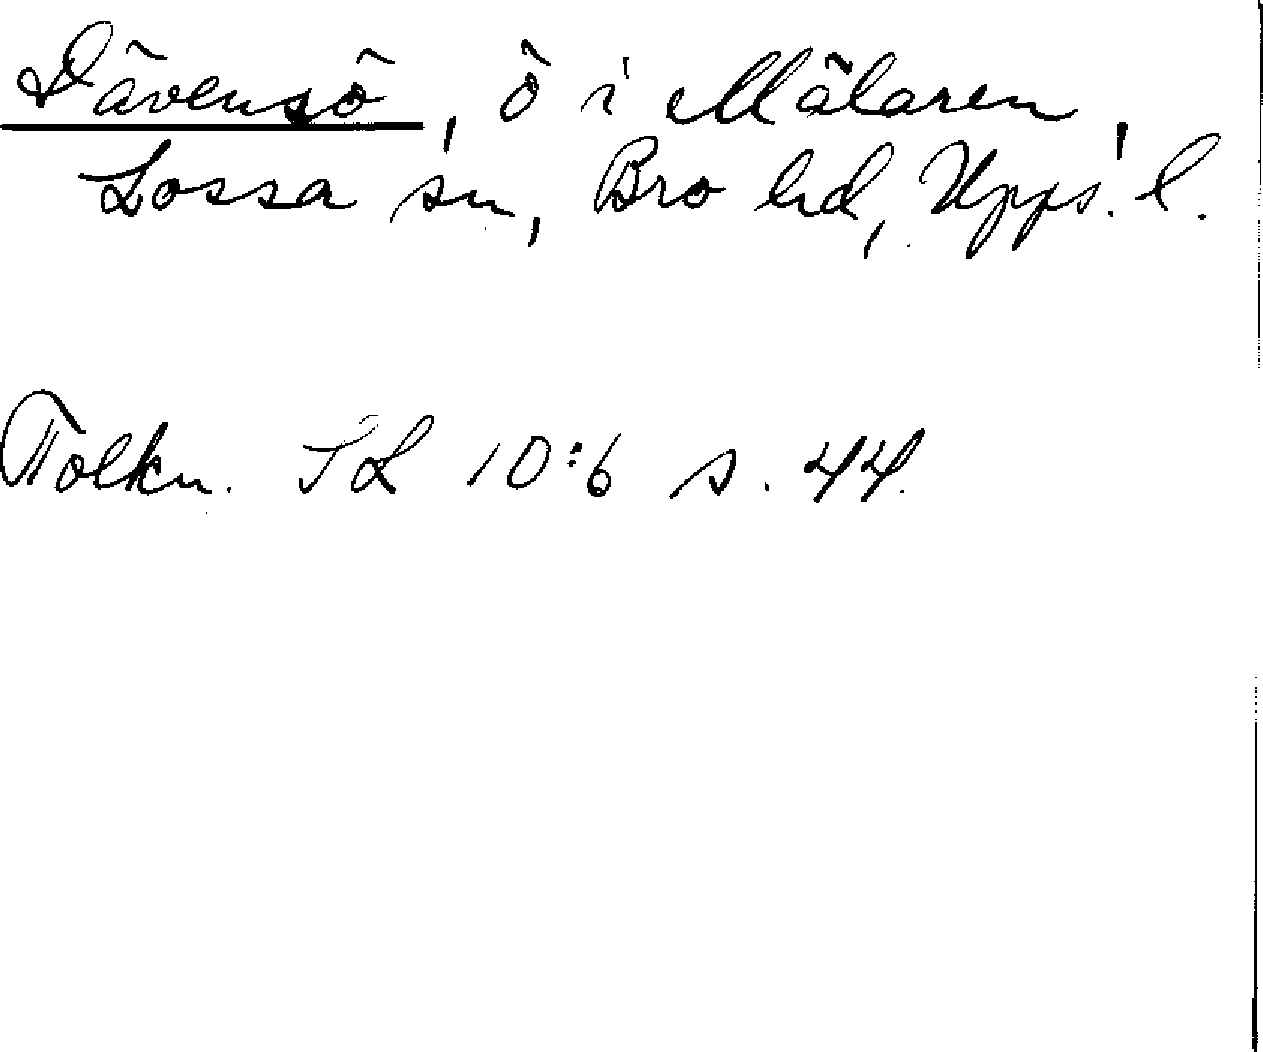 Dävensö, ö i Mälaren,
Lossa sn, Bro hd, Upps. l.
Tolkn. SL 10:6 s. 44.